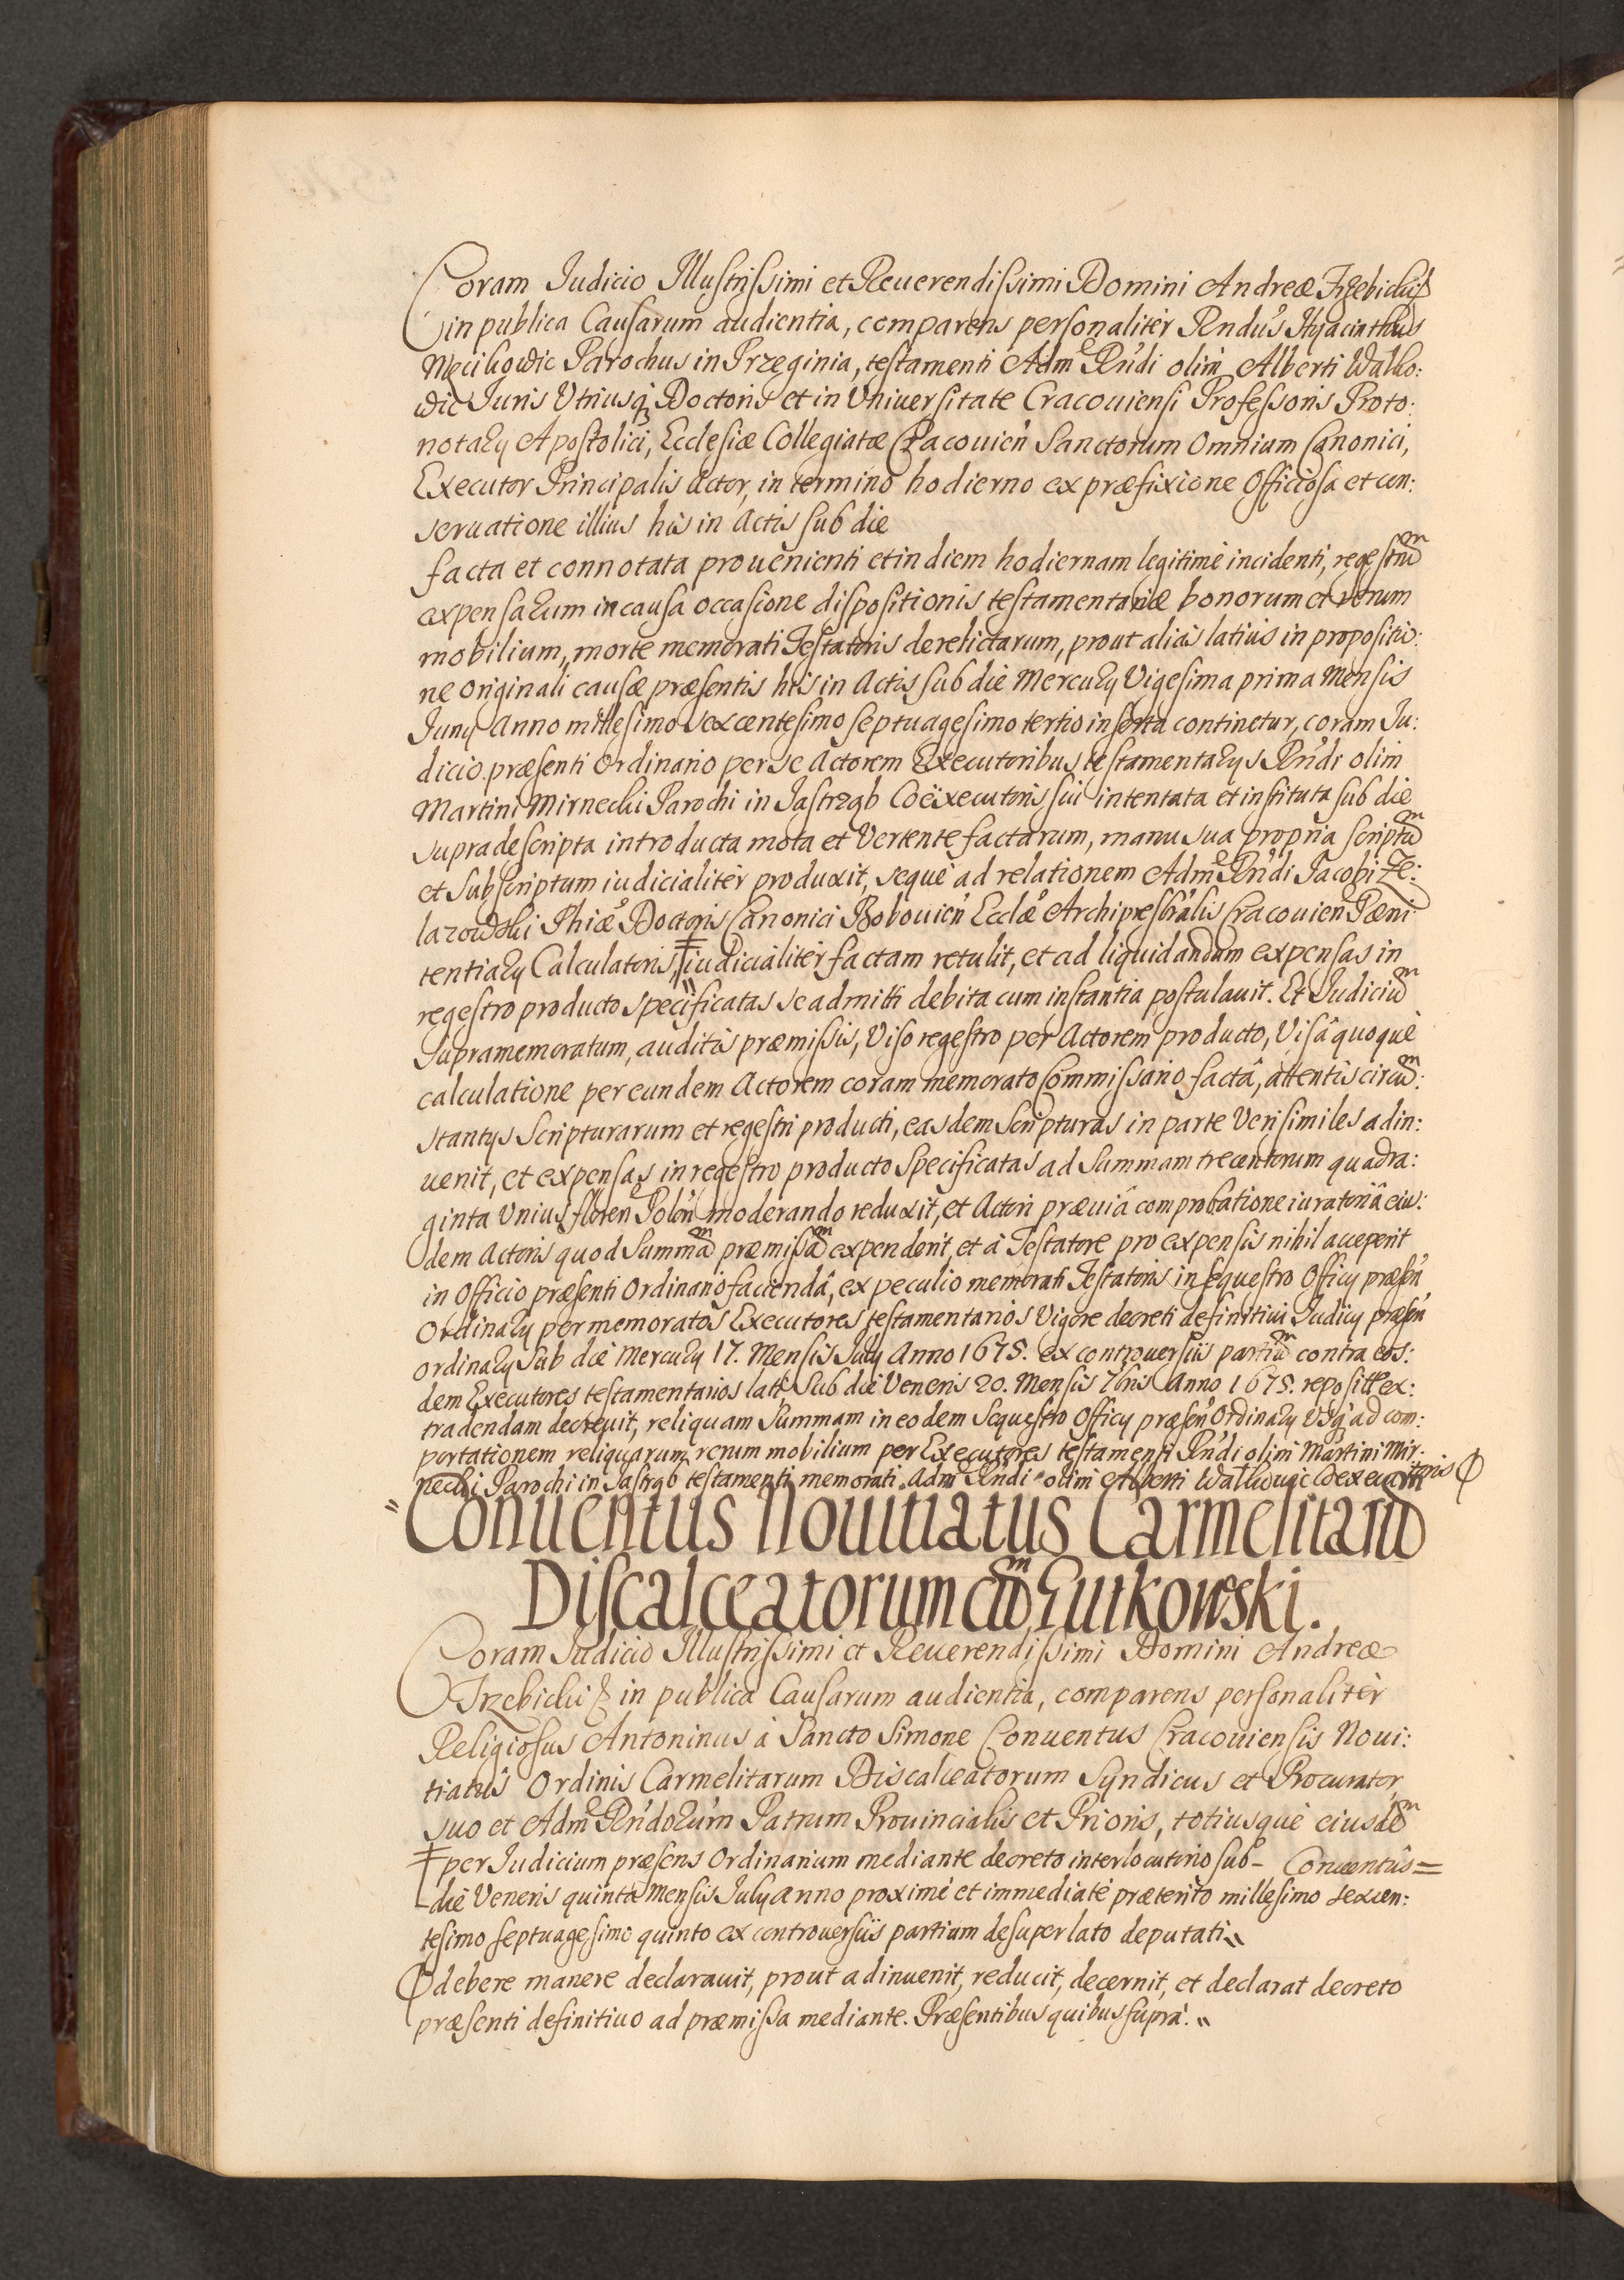 Coram Judicio Illustrissimi et Reuerendissimi Domini Andreæ Trzebicki
in publica Causarum audientia, comparens personalitèr Rndus Hyacinthus
Meciszowic Parochus in Przeginia, testamenti Adm Rndi olim Alberti Walko:
wic Juris Vtriusq; Doctoris et in Vniuersitate Cracouiensi Professoris Proto:
notary Apostolici, Ecclesiæ Collegiatæ Cracouien Sanctorum Omnium Canonici,
Executor Principalis Actor, in termino hodierno ex præfixione Officiosa et con:
seruatione illius his in Actis sub die
facta et connotata prouenienti et in diem hodiernam legitimè incidenti, regestrum
expensarum in causa occasione dispositionis testamentariæ bonorum et rerum
mobilium, morte memorati Testatoris derelictarum, prout aliàs latius in propositio:
ne originali causæ præsentis his in Actis sub die Mercury Vigesima prima Mensis
Juny Anno millesimo sexcentesimo septuagesimo tertio inserta continetur, coram Ju:
dicio præsenti Ordinario per se Actorem Executoribus testamentarys Rndi olim
Martini Mirnecki Parochi in Jastrząb Coëxecutoris sui intentata et instituta sub die
supradescripta introducta mota et Vertente factarum, manu sua propria scriptum
et subscriptum iudicialitèr produxit, sequè ad relationem Adm Rndi Jacobi Ze:
lazowski Phiæ Doctoris Canonici Bobouien Ecclæ Archipresbralis Cracouien Pæni
tentiary Calculatoris ‡ iudicialitèr factam retulit, et ad liquidandum expensas in
regestro producto specificatas se admitti debita cum instantia postulauit. Et Judicium
supramemoratum, auditis præmissis, Viso regestro per Actorem producto, Visâ quoquè
calculatione per eundem Actorem coram memorato Commissario factâ, attentis circum:
stantys Scripturarum et regestri producti, easdem Scripturas in parte Verisimiles adin:
uenit, et expensas in regestro producto specificatas ad Summam trecentorum quadra:
ginta Vnius floren Polon moderando reduxit, et Actori præuiâ comprobatione iuratoriâ eius:
dem Actoris quod Summam præmissam expenderit, et à Testatore pro expensis nihil acceperit
in Officio præsenti Ordinario faciendâ, ex peculio memorati Testatoris in sequestro Officy præsen
Ordinary per memoratos Executores testamentarios Vigore decreti definitiui Judicy præsen
ordinary sub die Mercury 17. Mensis July Anno 1675. ex controuersiis partium contra eos:
dem Executores testamentarios lati Sub die Veneris 20. Mensis 7bris Anno 1675. repositi ex:
tradendam decreuit, reliquam Summam in eodem Sequestro Officy præsen Ordinary Vsq; ad com:
portationem reliquarum rerum mobilium per Executores testamenti Rndi olim Martini Mir:
necki Parochi in Jastrząb testamenti memorati Adm Rndi olim Alberti Walkowic Coexecutoris Ф
Conuentus Nouitiatus Carmelitarum
Discalceatorum cum Rutkowski.
Coram Judicio Illustrissimi et Reuerendissimi Domini Andreæ
Trzebicki in publica Causarum audientia, comparens personalitèr
Religiosus Antoninus à Sancto Simone Conuentus Cracouiensis Noui:
tiatûs Ordinis Carmelitarum Discalceatorum Syndicus et Procurator,
suo et Adm Rndorum Patrum Prouincialis et Prioris, totiusquè eiusdem
Conuentûs=
‡ per Judicium præsens Ordinarium mediante decreto interlocutorio sub-
die Veneris quinta Mensis July anno proximè et immediatè præterito millesimo sexcen:
tesimo septuagesimo quinto ex controuersiis partium desuper lato deputati〃
Ф debere manere declarauit, prout adinuenit, reducit, decernit, et declarat decreto
præsenti definitiuo ad præmissa mediante. Præsentibus quibus suprà.〃